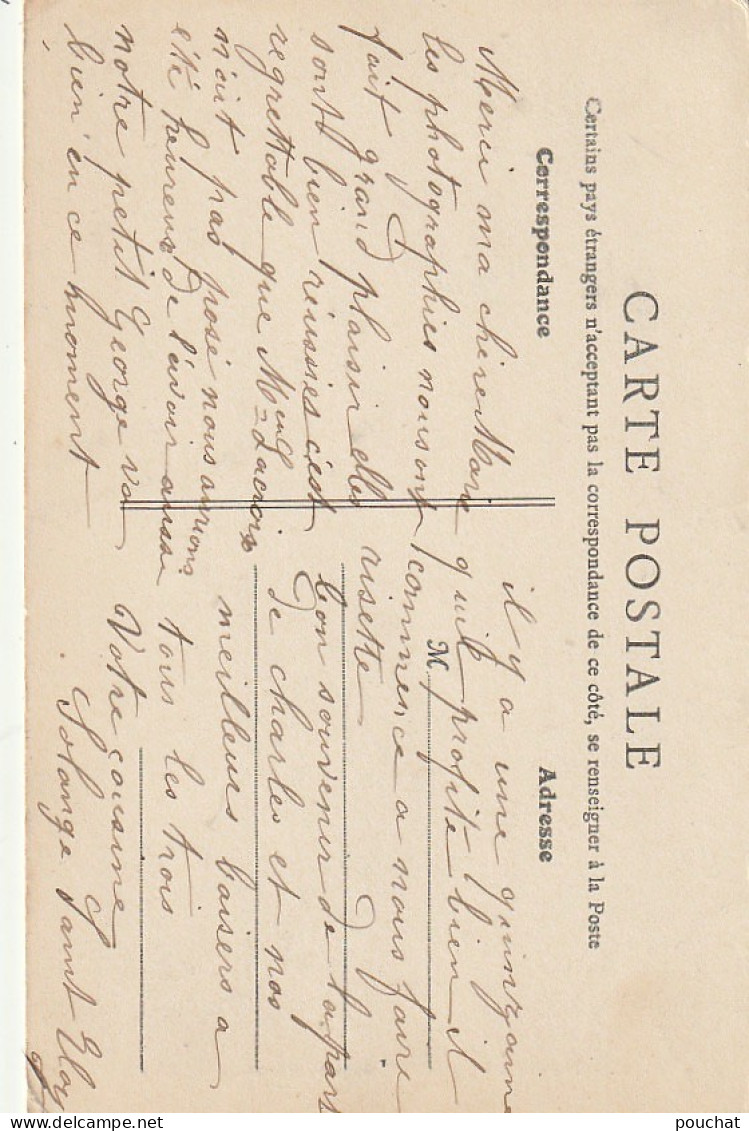 CARTE POSTALE
Certains pays étrangers n'acceptant pas la correspondance de ce côté, se renseigner à la Poste
Correspondance
Adresse
Merci ma chère Marie
les photographies nous ont
fait grand plaisir elles
sont bien réussies c'est
regrettable que Melle Lacroix
n'eut pas posé nous aurions
été heureux de l'avoir aussi
notre petit George va
bien en ce moment
il y a une quinzaine
qu'il profite bien il
M
commence a nous faire
risette
bon souvenir de la part
de charles et nos
meilleurs baisers a
tous les trois
Votre cousine
Solange Saint Eloy
www.delcampe.net
pouchat